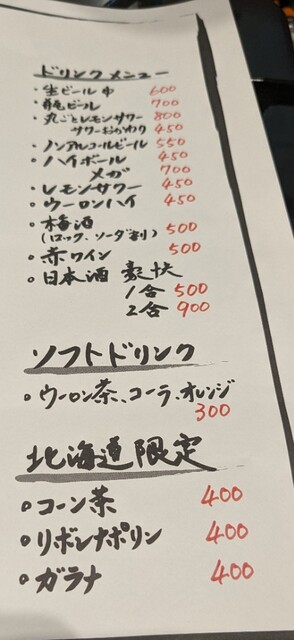 ドリンクメニュー
・生ビール 中 600
・瓶ビール 700
・丸ごとレモンサワー 800
サワーおかわり 450
・ノンアルコールビール 550
・ハイボール 450
メガ 700
・レモンサワー 450
・ウーロンハイ 450
・梅酒 500
(ロック、ソーダ割)
・赤ワイン 500
・日本酒 豪快
1合 500
2合 900
ソフトドリンク
・ウーロン茶、コーラ、オレンジ
300
北海道限定
・コーン茶 400
・リボンナポリン 400
・ガラナ 400